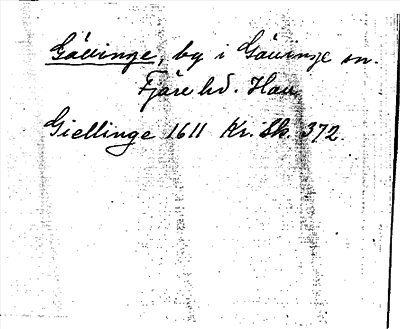 Gällinge, by i Gällinge sn.
Fjäre hd. Hall.
Giellinge 1611 Kr. Sk. 372.